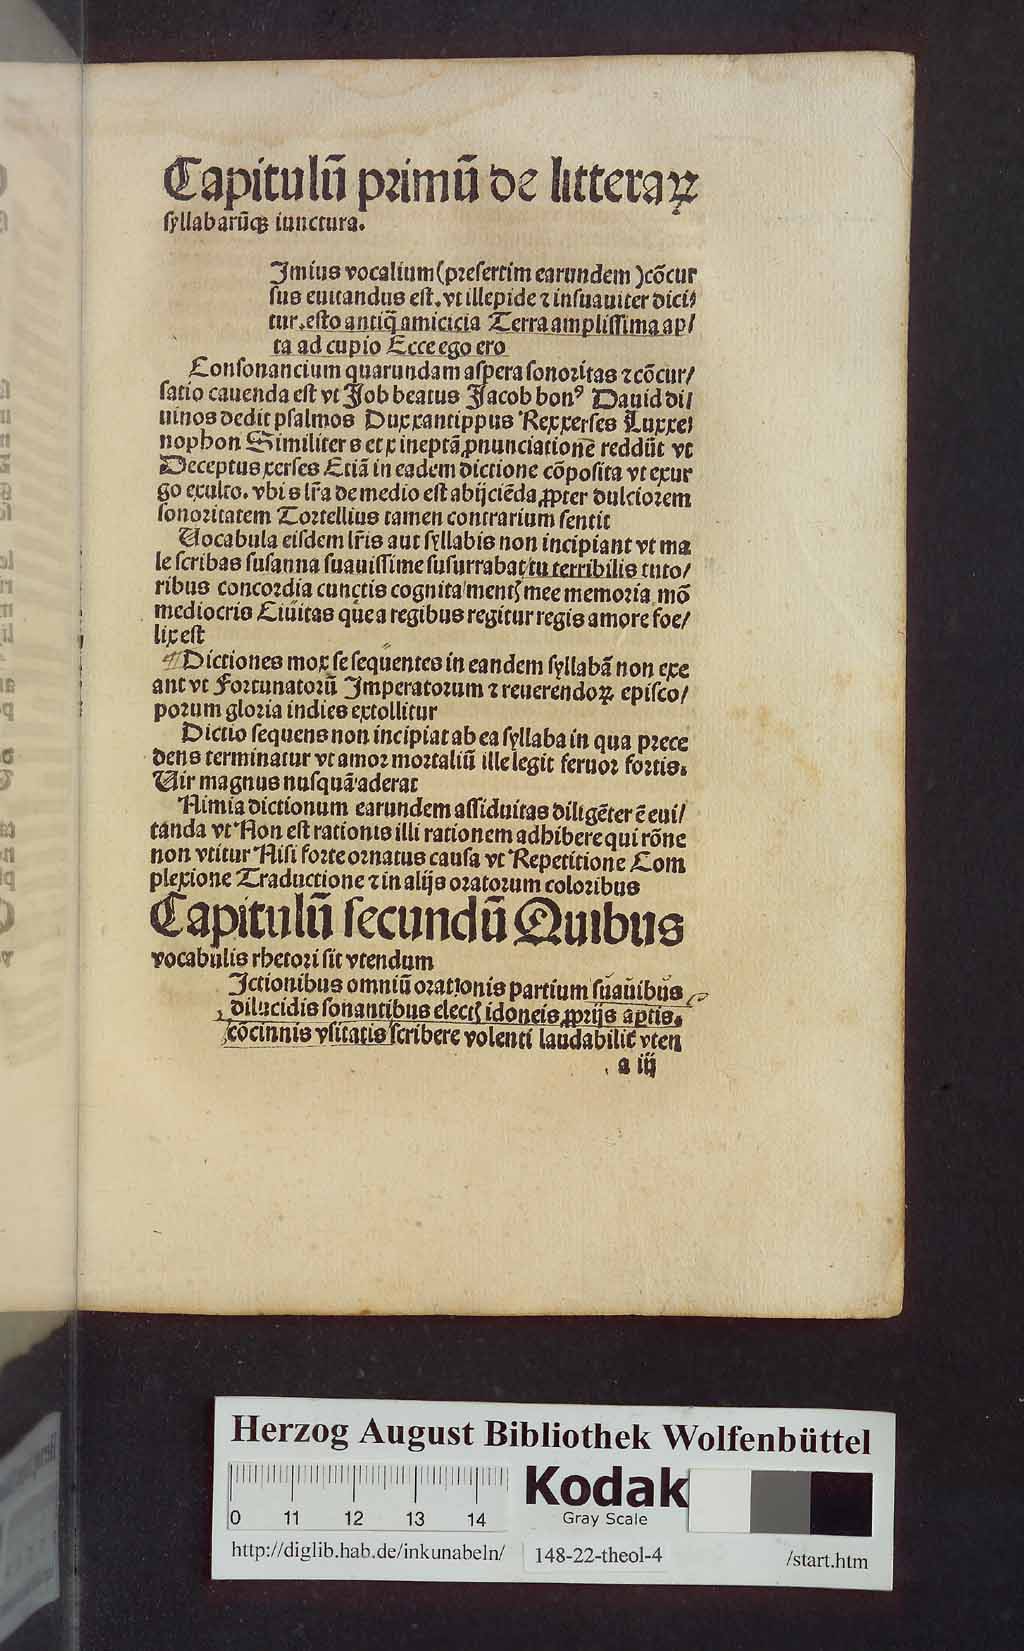 Capitulū primū de litteraꝝ
syllabarūqꝫ iunctura.
Imius vocalium (presertim earundem) cōcur
sus euitandus est. vt illepide ⁊ insuauiter dici/
tur. esto antiq̄ amicicia Terra amplissima ap/
ta ad cupio Ecce ego ero
Consonancium quarundam aspera sonoritas ⁊ cōcur/
satio cauenda est vt Job beatus Jacob bonꝰ Dauid di/
uinos dedit psalmos Duxxantippus Rexxerses Luxxe/
nophon Similiter s et x ineptā ꝓnunciationē reddūt vt
Deceptusxerses Etiā in eadem dictione cōposita vt exur
go exulto. vbi s lr̄a de medio est abijciēda ꝓpter dulciorem
sonoritatem Tortellius tamen contrarium sentit
Vocabula eisdem lr̄is aut syllabis non incipiant vt ma
le scribas susanna suauissime susurrabat tu terribilis tuto/
ribus concordia cunctis cognita mentꝭ mee memoria mō
mediocris Ciuitas que a regibus regitur regis amore foe/
lix est
¶ Dictiones mox se sequentes in eandem syllabā non exe
ant vt Fortunatorū Imperatorum ⁊ reuerendoꝝ episco/
porum gloria indies extollitur
Dictio sequens non incipiat ab ea syllaba in qua prece
dens terminatur vt amor mortaliū ille legit feruor fortis.
Vir magnus nusquā aderat
Nimia dictionum earundem assiduitas diligēter ē eui/
tanda vt Non est rationis illi rationem adhibere qui rōne
non vtitur Nisi forte ornatus causa vt Repetitione Com
plexione Traductione ⁊ in alijs oratorum coloribus
Capitulū secundū Quibus
vocabulis rhetori sit vtendum
Ictionibus omniū orationis partium suauibus
dilucidis sonantibus electꝭ idoneis ꝓprijs aptis.
cōcinnis vsitatis scribere volenti laudabilit̄ vten
a iij
Herzog August Bibliothek Wolfenbüttel
0 11 12 13 14
Kodak
Gray Scale
http://diglib.hab.de/inkunabeln/ 148-22-theol-4 /start.htm